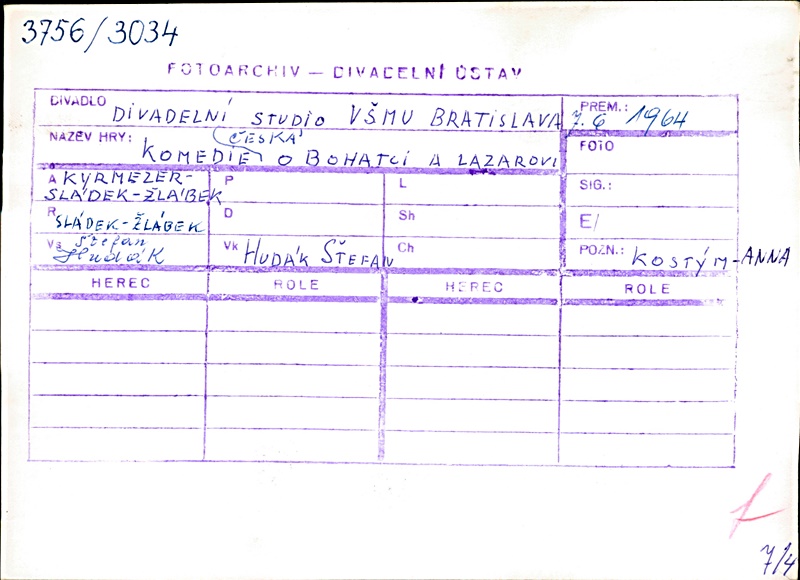 3756/3034
FOTOARCHIV — DIVADELNÍ ÚSTAV
DIVADLO DIVADELNÍ STUDIO VŠMU BRATISLAVA
PREM.: 7. 6 1964
NÁZEV HRY: ČESKÁ
KOMEDIE O BOHATCI A LAZAROVI
FOTO
A KYRMEZER-
SLÁDEK-ŽLÁBEK
P
L
SIG.:
R SLÁDEK-ŽLÁBEK
D
Sh
E/
Vs Štefan
Hudák
Vk HUDÁK ŠTEFAN
Ch
POZN.: KOSTÝM-ANNA
HEREC ROLE HEREC ROLE
7/4